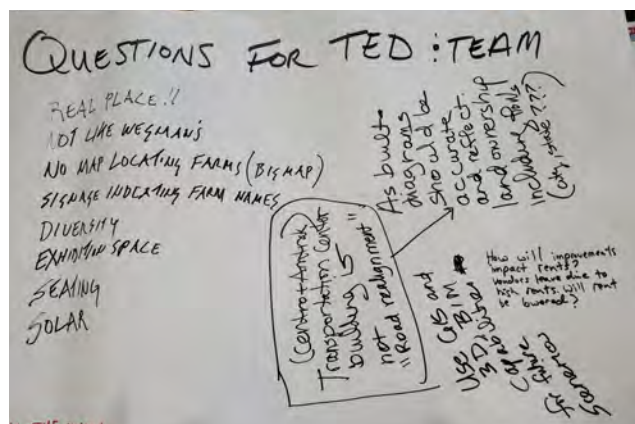 QUESTIONS FOR TED : TEAM
REAL PLACE!!
NOT LIKE WEGMAN'S
NO MAP LOCATING FARMS (BIG MAP)
SIGNAGE INDICATING FARM NAMES
DIVERSITY
EXHIBITION SPACE
SEATING
SOLAR
(Centro + Amtrak)
Transportation Center
building is
not
"Road realignment"
As built
diagrams
should be
accurate
and reflect
land ownership
including
(city, state ???)
Use GIS and
3D, BIM
Capabilities
for future
Scenarios
How will improvements
impact rents?
Vendors leave due to
high rents. Will rent
be lowered?